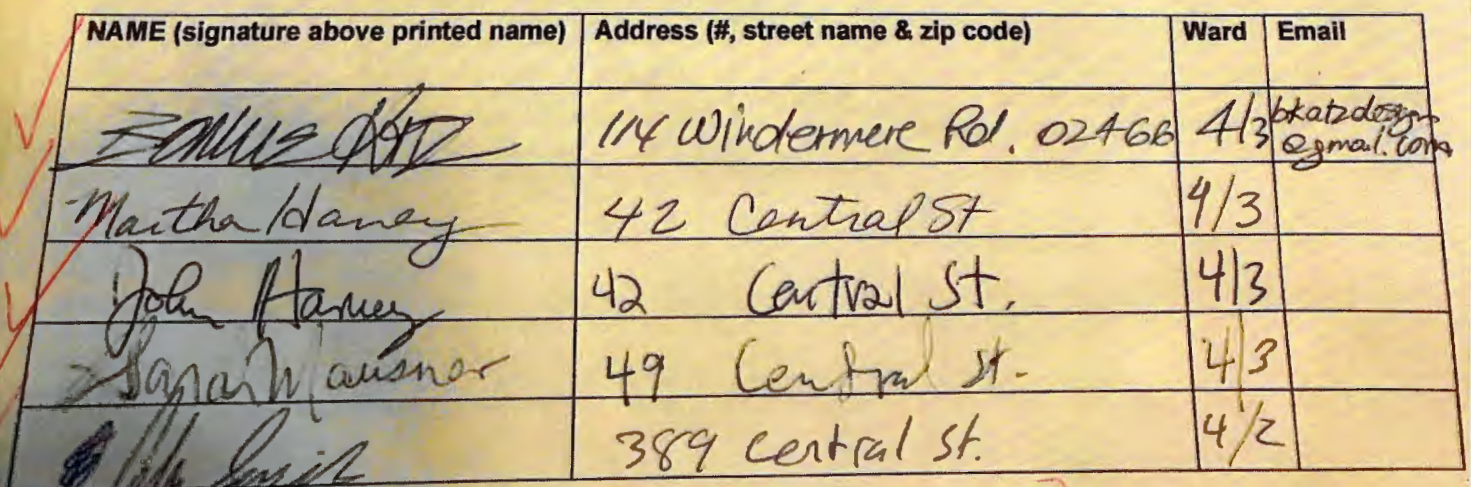 NAME (signature above printed name) Address (#, street name & zip code) Ward Email
114 Windermere Rd. 02466 4/3 bkatzdesign
@gmail.com
Martha Harney 42 Central St 4/3
John Harney 42 Central St. 4/3
Mausner 49 Central St. 4/3
389 Central St. 4/2